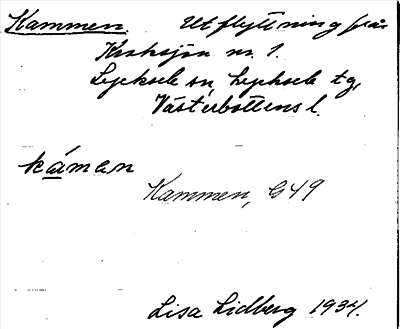 Kammen. Utflyttning från
Kroksjön nr. 1.
Lycksele sn, Lycksele tg,
Västerbottens l.
kámen
Kammen, G49
Lisa Lidberg 1934.